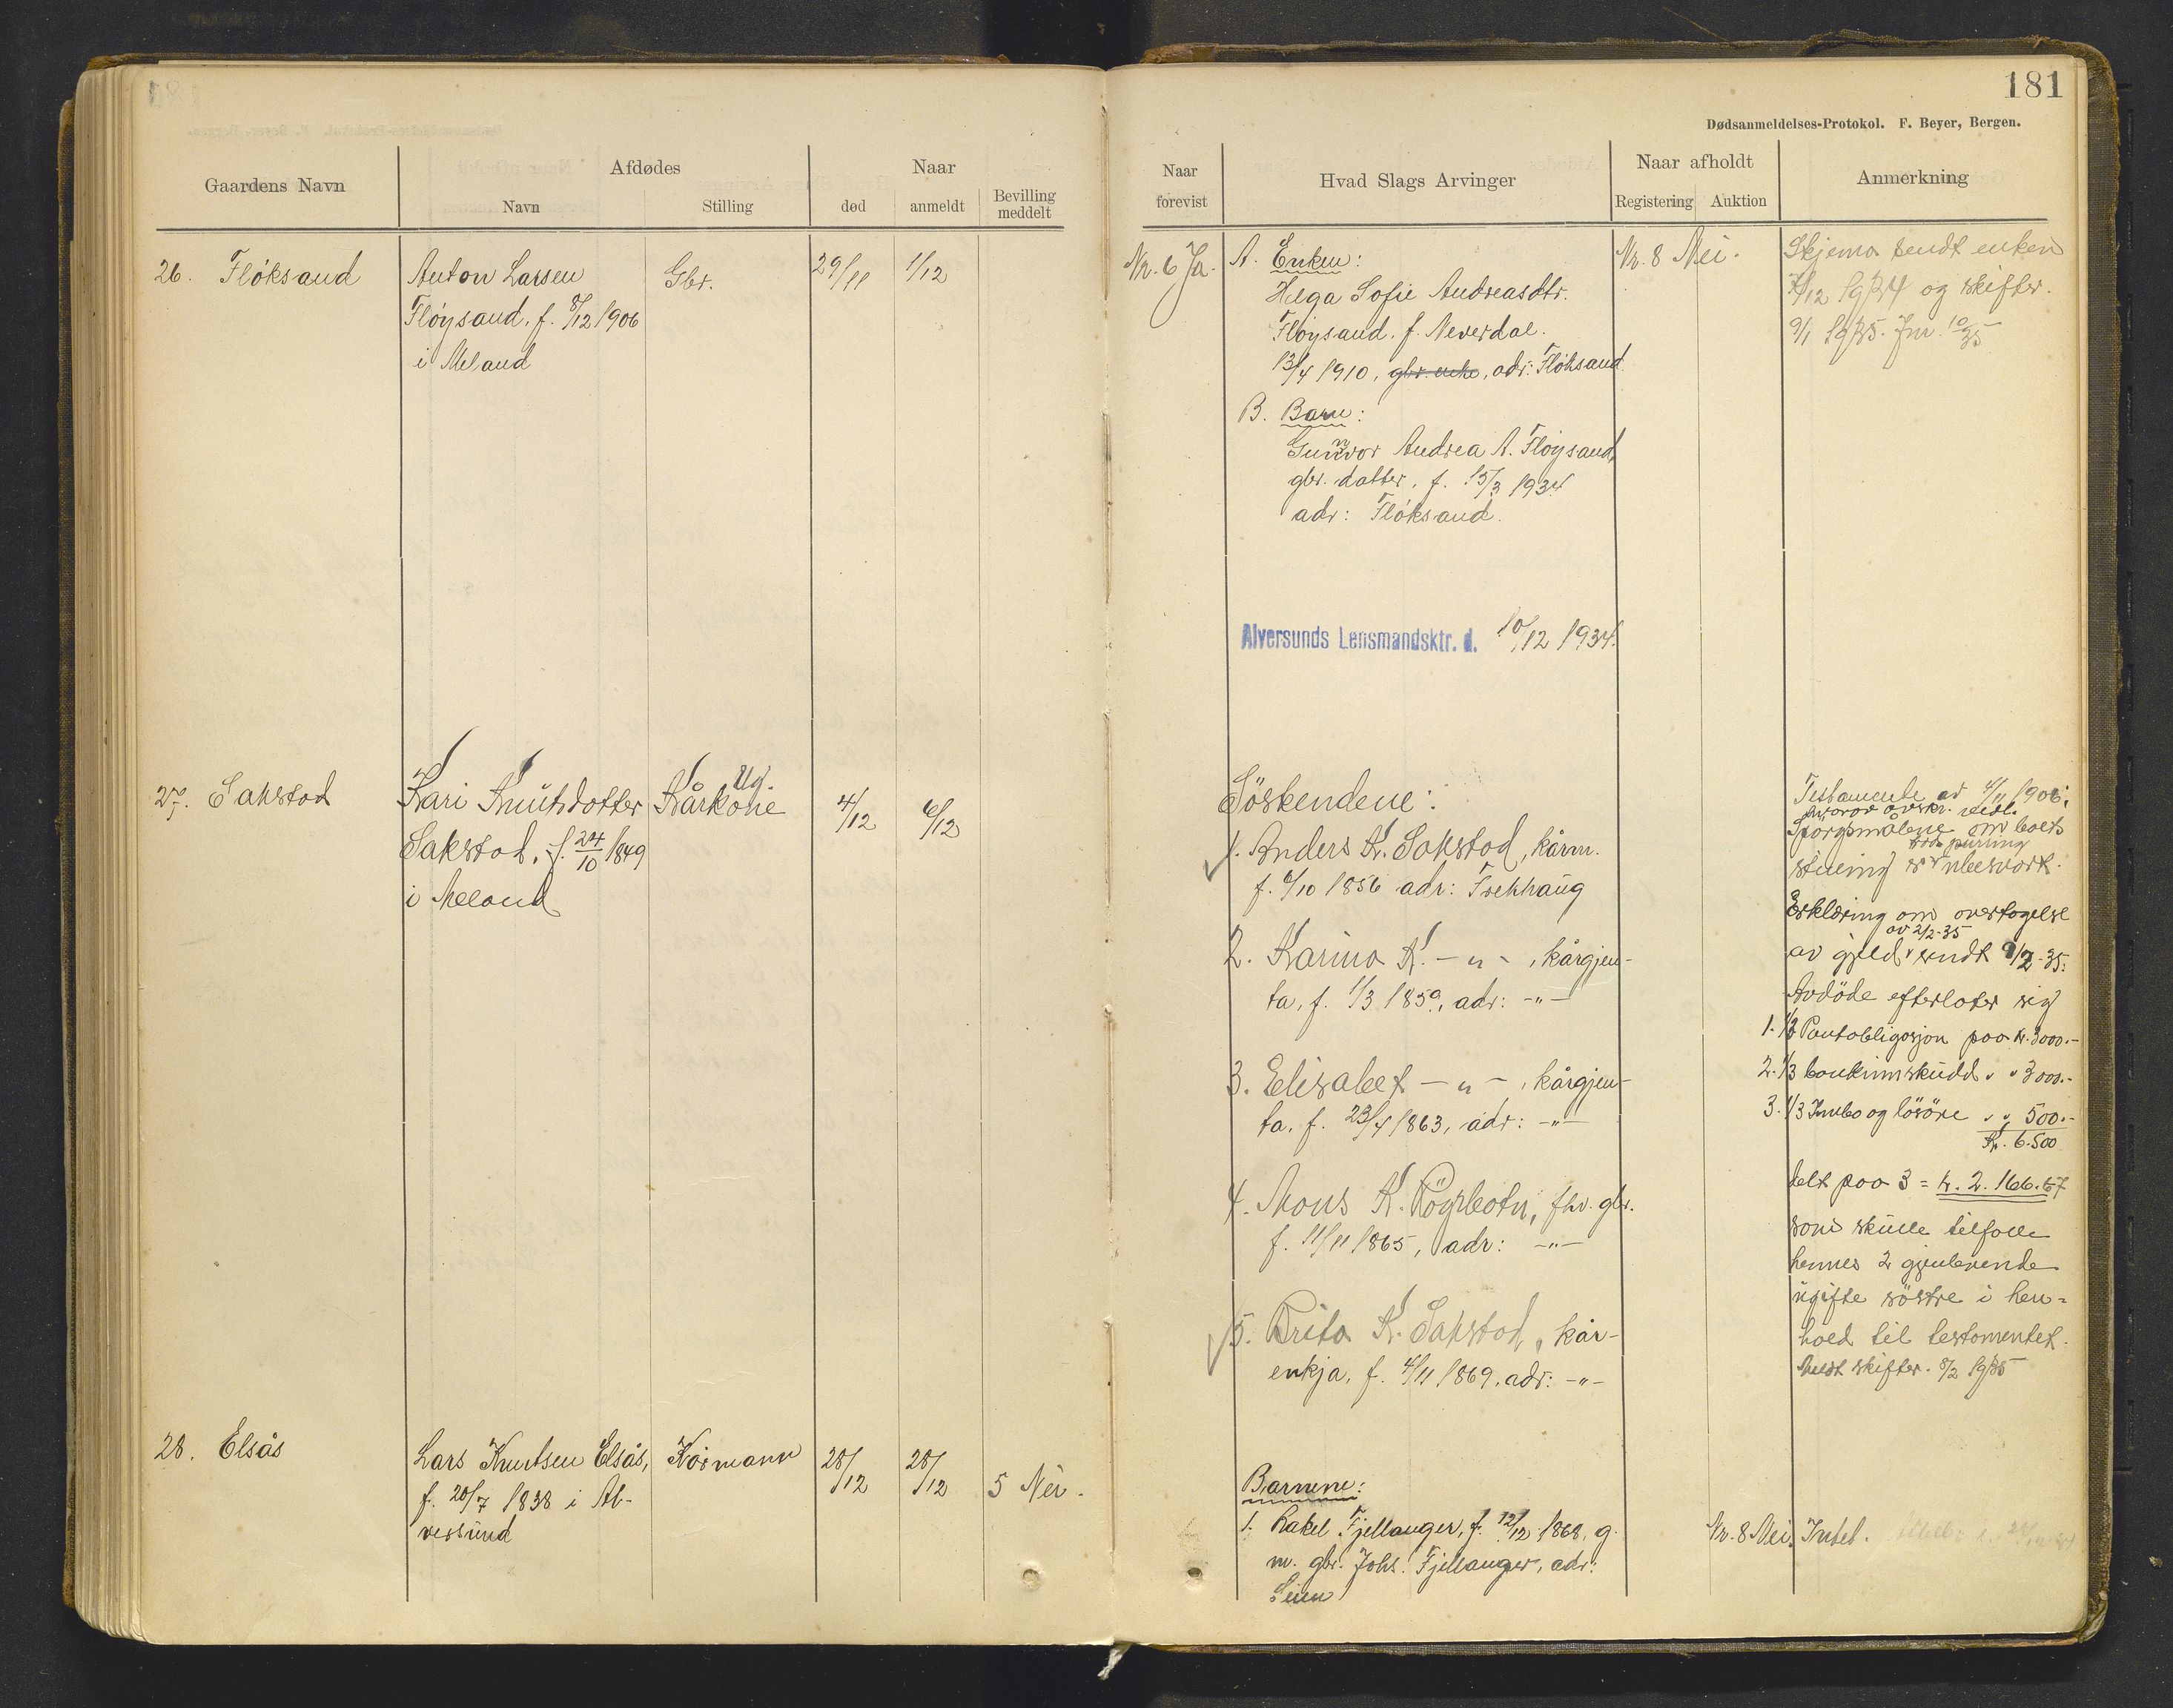 181
Dødsanmeldelses-Protokol. F. Beyer, Bergen.
Gaardens Navn
Afdødes
Navn
Stilling
Naar
død
anmeldt
Bevilling
meddelt
Naar
forevist
Hvad Slags Arvinger
Naar afholdt
Registering
Auktion
Anmerkning
26. Fløksand
Anton Larsen
Fløysand, f. 8/12 1906
i Meland
Gbr.
29/11
1/12
Nr. 6 Ja.
A. Enken:
Helga Sofie Andreasdtr.
Fløysand, f. Neverdal.
13/4 1910, gbr. enke, adr: Fløksand
B. Barn:
Gunvor Andrea A. Fløysand,
gbr. datter, f. 15/3 1934
adr: Fløksand.
Nr. 8 Nei.
Skjema sendt enken
/12 1934 og skifter.
9/1 1935. Jnr. 10/35
Alversunds Lensmandsktr. d. 10/12 1934.
27. Sakstad
Kari Knutsdotter
Sakstad, f. 24/10 1849
i Meland
Ug.
Kårkone
4/12
6/12
Söskendene:
1. Anders K. Sakstad, kårm.
f. 6/10 1856 adr: Frekhaug
2. Karina K. -"-, kårgjen-
ta, f. 1/3 1859, adr: -"-
3. Elisabet -"-, kårgjen-
ta, f. 23/4 1863, adr: -"-
4. Mons K. Röyrbotn, fhv. gbr.
f. 11/11 1865, adr: -"-
5. Brita K. Sakstad, kår-
enkja, f. 4/11 1869, adr: -"-
Testamente av 4/11 1906,
hvorav avskr. vedl.
Spörgsmålene om boets
tross purring
stilling er ubesvart.
Erklæring om overtagelse
av 2/2-35
av gjeld sendt 9/2-35.
Avdöde efterlater sig
1. 1/3 Pantobligasjon paa kr. 3000.-
2. 1/3 bankinnskudd " " 3000.-
3. 1/3 Innbo og lösöre " " 500.-
Kr. 6.500
delt paa 3 = kr. 2.166.67
som skulle tilfalle
hennes 2 gjenlevende
ugifte söstre i hen=
hold til testamentet.
Meldt skifter. 8/2 1935
28. Elsås
Lars Knutsen Elsås,
f. 20/7 1838 i Al-
versund
Kårmann
28/12
28/12
5 Nei.
Barnene:
1. Rakel Fjellanger, f. 12/12 1868, g.
m. gbr. Johs. Fjellanger, adr:
Seim
Nr. 8 Nei.
Intet.